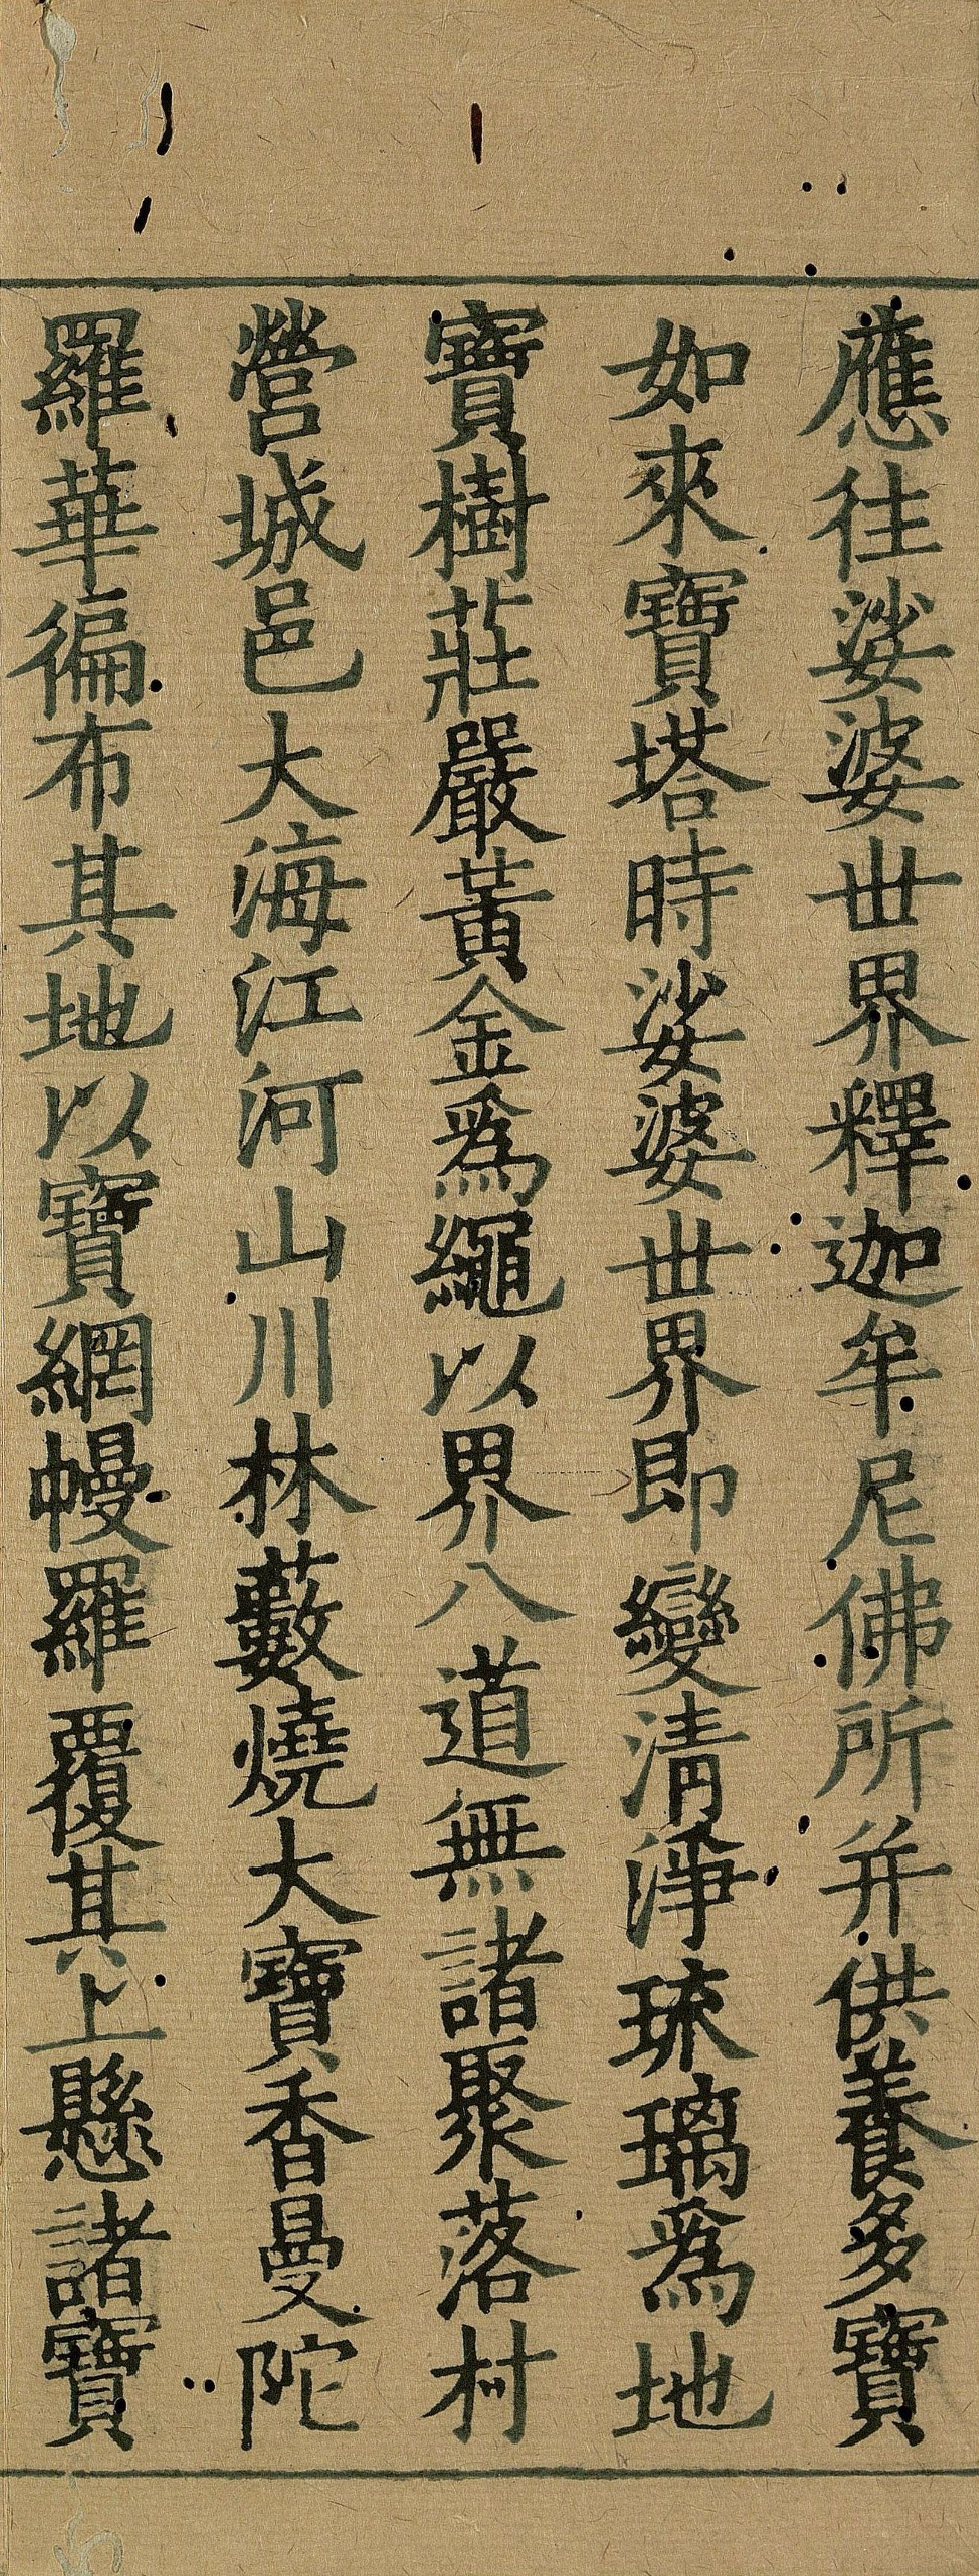 應往娑婆世界釋迦牟尼佛所并供養多寶
如來寶塔時娑婆世界即變清淨琉璃為地
寶樹莊嚴黃金為繩以界八道無諸聚落村
營城邑大海江河山川林藪燒大寶香曼陀
羅華徧布其地以寶網幔羅覆其上懸諸寶